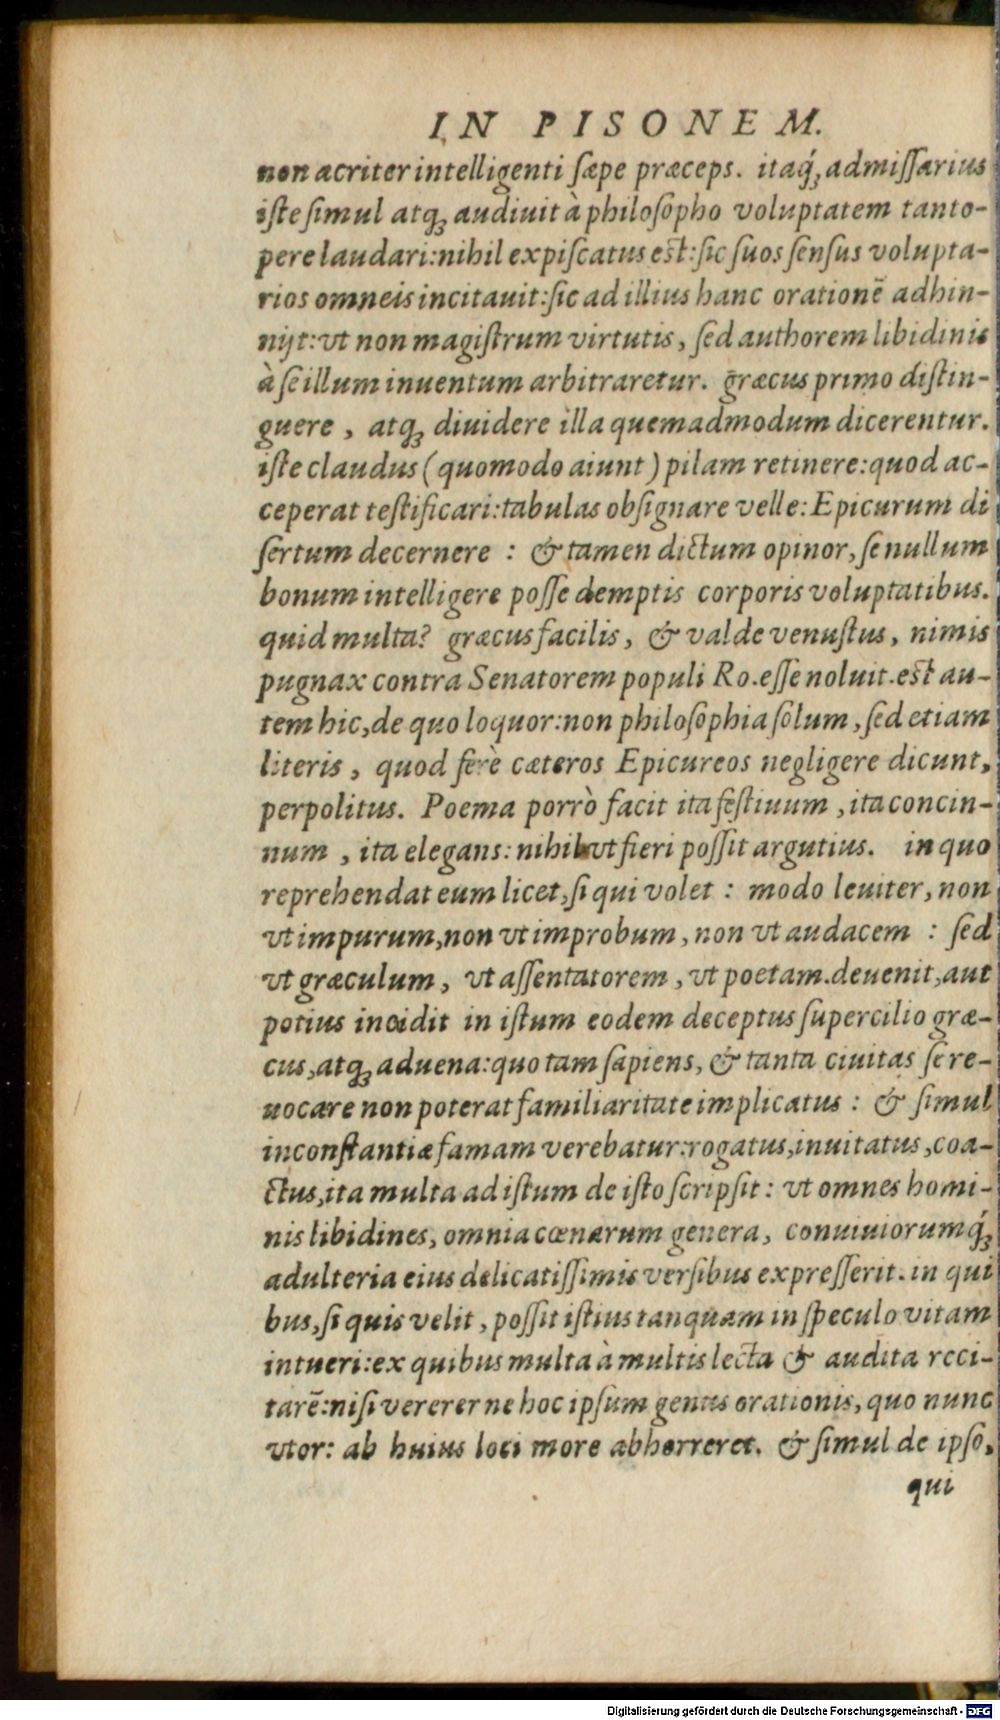 IN PISONEM.
non acriter intelligenti sæpe præceps. itaq́; admissarius
iste simul atq; audiuit à philosopho voluptatem tanto-
pere laudari: nihil expiscatus est: sic suos sensus volupta-
rios omneis incitauit: sic ad illius hanc orationē adhin-
nijt: vt non magistrum virtutis, sed authorem libidinis
à se illum inuentum arbitraretur. græcus primo distin-
guere, atq; diuidere illa quemadmodum dicerentur.
iste claudus (quomodo aiunt) pilam retinere: quod ac-
ceperat testificari: tabulas obsignare velle: Epicurum di
sertum decernere: & tamen dictum opinor, se nullum
bonum intelligere posse demptis corporis voluptatibus.
quid multa? græcus facilis, & valde venustus, nimis
pugnax contra Senatorem populi Ro. esse noluit. est au-
tem hic, de quo loquor: non philosophia solum, sed etiam
literis, quod ferè cæteros Epicureos negligere dicunt,
perpolitus. Poema porrò facit ita festiuum, ita concin-
num, ita elegans: nihil vt fieri possit argutius. in quo
reprehendat eum licet, si qui volet: modo leuiter, non
vt impurum, non vt improbum, non vt audacem: sed
vt græculum, vt assentatorem, vt poetam. deuenit, aut
potius incidit in istum eodem deceptus supercilio græ-
cus, atq; aduena: quo tam sapiens, & tanta ciuitas se re-
uocare non poterat familiaritate implicatus: & simul
inconstantiæ famam verebatur: rogatus, inuitatus, coa-
ctus, ita multa ad istum de isto scripsit: vt omnes homi-
nis libidines, omnia cœnarum genera, conuiuiorumq́;
adulteria eius delicatissimis versibus expresserit. in qui
bus, si quis velit, possit istius tanquam in speculo vitam
intueri: ex quibus multa à multis lecta & audita reci-
tarē: nisi vererer ne hoc ipsum genus orationis, quo nunc
vtor: ab huius loci more abhorreret. & simul de ipso,
qui
Digitalisierung gefördert durch die Deutsche Forschungsgemeinschaft - DFG